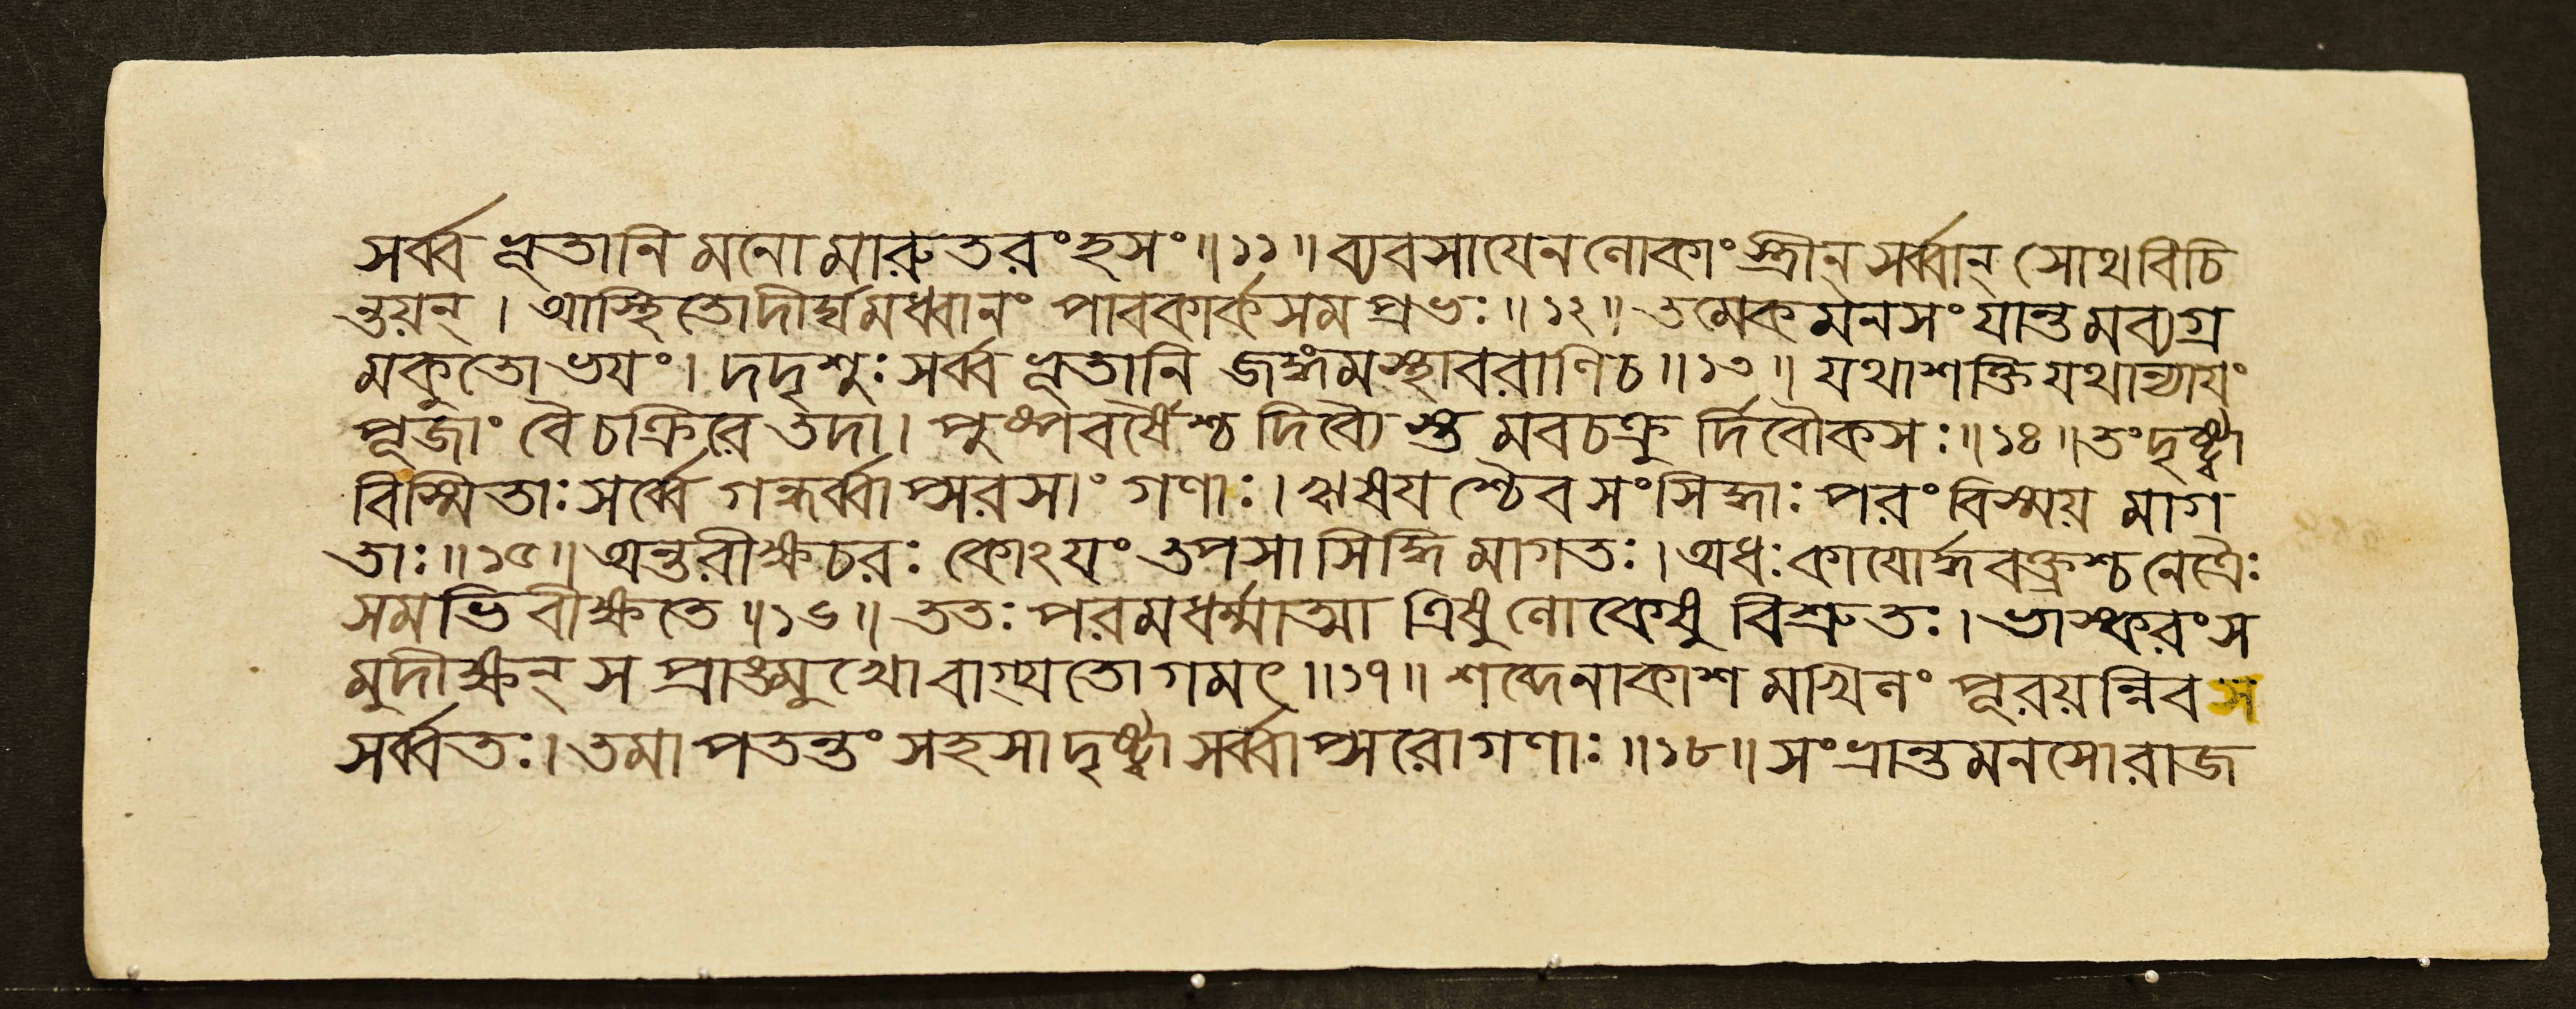 সর্ব্ব ভূতানি মনো মারুতরংহসং॥১১॥ ব্যবসায়েন লোকাংস্ত্রীন্ সর্ব্বান্ সোথ বিচি
ন্তয়ন্ । আস্থিতো দীর্ঘমধ্বানং পাবকার্কসমপ্রভঃ॥১২॥ তমেকমনসং যান্তমব্যগ্র
মকুতোভয়ং। দদৃশুঃ সর্ব্ব ভূতানি জঙ্গমস্থাবরাণিচ॥১৩॥ যথাশক্তি যথান্যায়ং
পূজাং বৈ চক্রিরে তদা। পুষ্পবর্ষৈশ্চ দিব্যৈ স্তমবচক্রু র্দিবৌকসঃ॥১৪॥ তং দৃষ্ট্বা
বিস্মিতাঃ সর্ব্বে গন্ধর্ব্বাপ্সরসাং গণাঃ। ঋষয়শ্চৈব সংসিদ্ধাঃ পরং বিস্ময় মাগ
তাঃ॥১৫॥ অন্তরীক্ষচরঃ কোঽয়ং তপসা সিদ্ধি মাগতঃ। অধঃকায়োর্দ্ধবক্ত্রশ্চ নেত্রৈঃ
সমভিবীক্ষতে॥১৬॥ ততঃ পরমধর্ম্মাত্মা ত্রিষু লোকেষু বিশ্রুতঃ। ভাস্করং স
মুদীক্ষন্ স প্রাঙমুখো বাগ্যতো গমৎ॥১৭॥ শব্দেনাকাশ মাখিলং পূরয়ন্নিব স
সর্ব্বতঃ। তমা পতন্তং সহসা দৃষ্ট্বা সর্ব্বাপ্সরোগণাঃ॥১৮॥ সংভ্রান্তমনসো রাজ